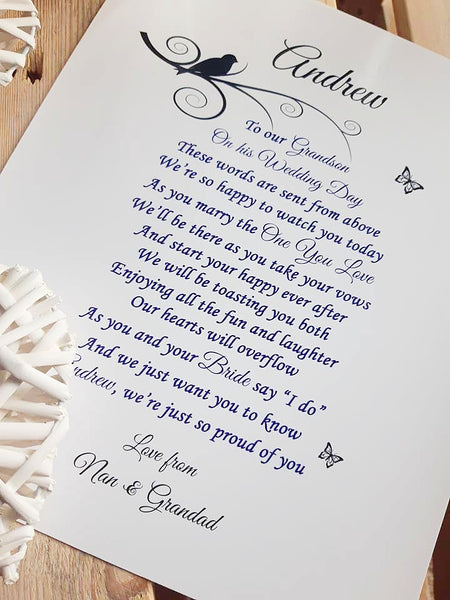 Andrew
To our Grandson
On his Wedding Day
These words are sent from above
We're so happy to watch you today
As you marry the One You Love
We'll be there as you take your vows
And start your happy ever after
We will be toasting you both
Enjoying all the fun and laughter
Our hearts will overflow
As you and your Bride say "I do"
And we just want you to know
Andrew, we're just so proud of you
Love from
Nan & Grandad